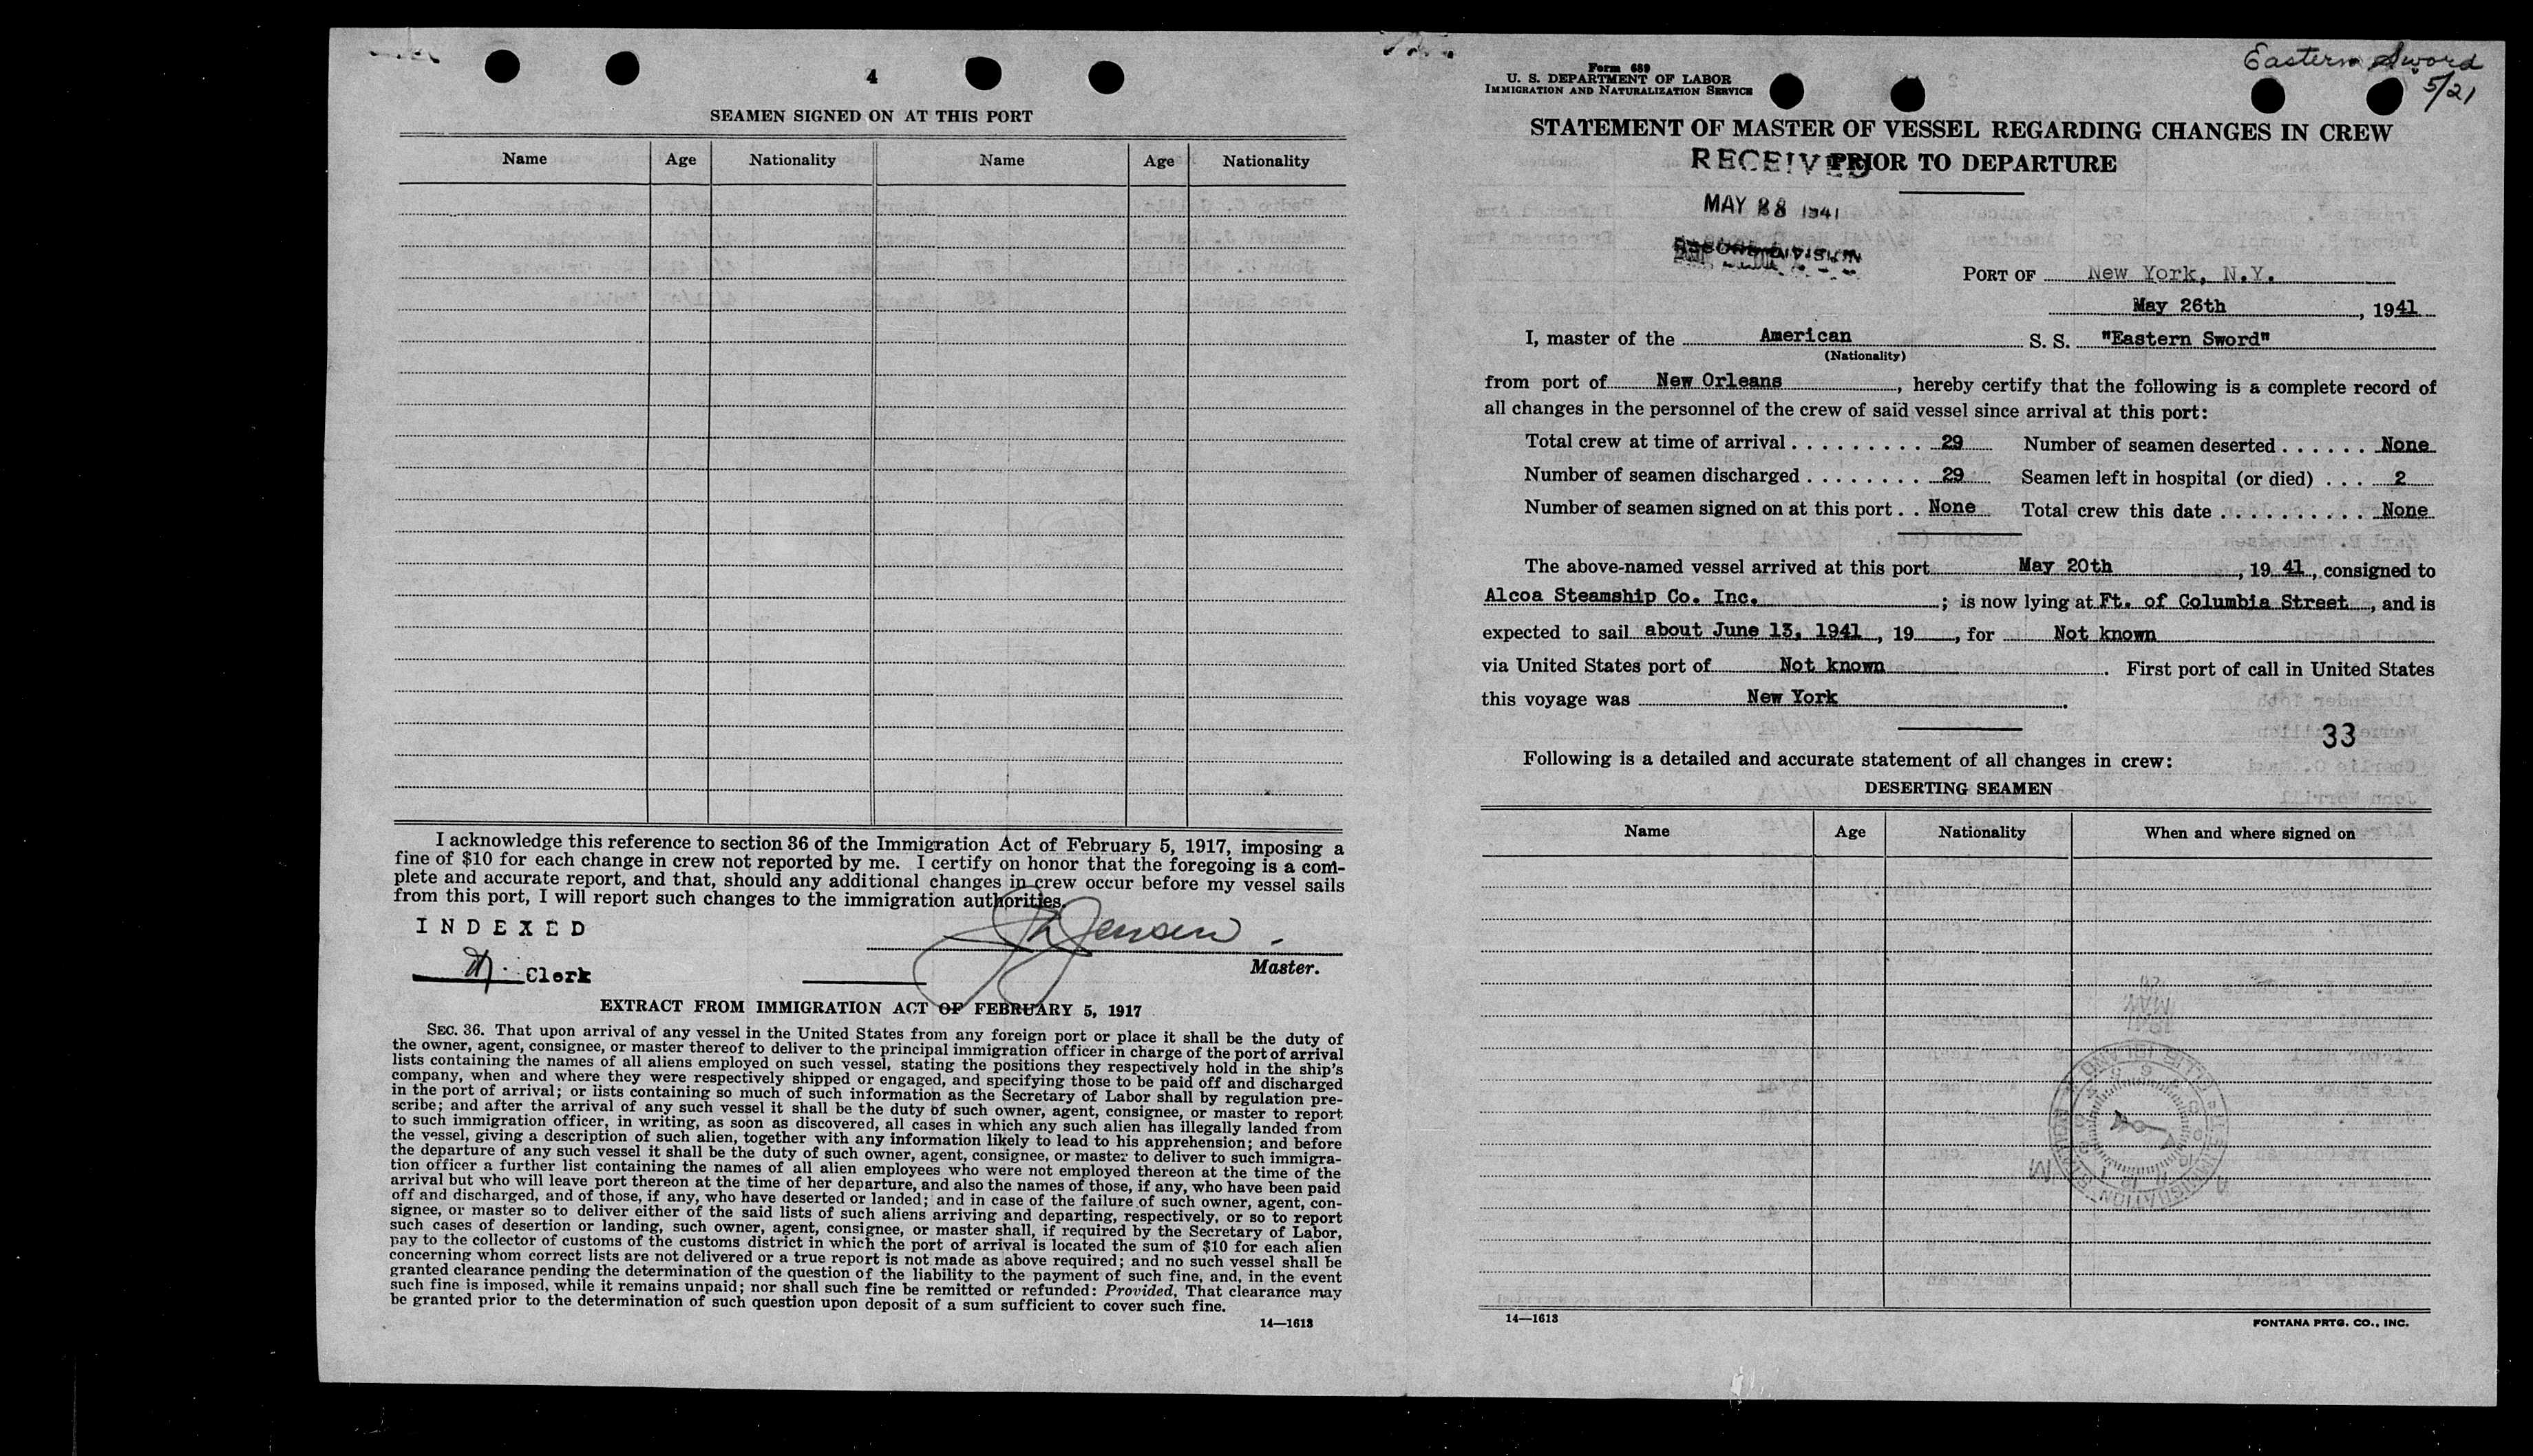 4
SEAMEN SIGNED ON AT THIS PORT
Name Age Nationality Name Age Nationality
I acknowledge this reference to section 36 of the Immigration Act of February 5, 1917, imposing a
fine of $10 for each change in crew not reported by me. I certify on honor that the foregoing is a com-
plete and accurate report, and that, should any additional changes in crew occur before my vessel sails
from this port, I will report such changes to the immigration authorities.
INDEXED
Jensen
Clerk
Master.
EXTRACT FROM IMMIGRATION ACT OF FEBRUARY 5, 1917
SEC. 36. That upon arrival of any vessel in the United States from any foreign port or place it shall be the duty of
the owner, agent, consignee, or master thereof to deliver to the principal immigration officer in charge of the port of arrival
lists containing the names of all aliens employed on such vessel, stating the positions they respectively hold in the ship's
company, when and where they were respectively shipped or engaged, and specifying those to be paid off and discharged
in the port of arrival; or lists containing so much of such information as the Secretary of Labor shall by regulation pre-
scribe; and after the arrival of any such vessel it shall be the duty of such owner, agent, consignee, or master to report
to such immigration officer, in writing, as soon as discovered, all cases in which any such alien has illegally landed from
the vessel, giving a description of such alien, together with any information likely to lead to his apprehension; and before
the departure of any such vessel it shall be the duty of such owner, agent, consignee, or master to deliver to such immigra-
tion officer a further list containing the names of all alien employees who were not employed thereon at the time of the
arrival but who will leave port thereon at the time of her departure, and also the names of those, if any, who have been paid
off and discharged, and of those, if any, who have deserted or landed; and in case of the failure of such owner, agent, con-
signee, or master so to deliver either of the said lists of such aliens arriving and departing, respectively, or so to report
such cases of desertion or landing, such owner, agent, consignee, or master shall, if required by the Secretary of Labor,
pay to the collector of customs of the customs district in which the port of arrival is located the sum of $10 for each alien
concerning whom correct lists are not delivered or a true report is not made as above required; and no such vessel shall be
granted clearance pending the determination of the question of the liability to the payment of such fine, and, in the event
such fine is imposed, while it remains unpaid; nor shall such fine be remitted or refunded: Provided, That clearance may
be granted prior to the determination of such question upon deposit of a sum sufficient to cover such fine.
14—1613
Eastern Sword
5/21
Form 689
U. S. DEPARTMENT OF LABOR
IMMIGRATION AND NATURALIZATION SERVICE
STATEMENT OF MASTER OF VESSEL REGARDING CHANGES IN CREW
PRIOR TO DEPARTURE
RECEIVED
MAY 28 1941
PORT OF New York, N.Y.
May 26th, 1941
I, master of the American S. S. "Eastern Sword"
(Nationality)
from port of New Orleans, hereby certify that the following is a complete record of
all changes in the personnel of the crew of said vessel since arrival at this port:
Total crew at time of arrival . . . . . . . . . . 29 Number of seamen deserted . . . . . . None
Number of seamen discharged . . . . . . . . 29 Seamen left in hospital (or died) . . . 2
Number of seamen signed on at this port . . None Total crew this date . . . . . . . . . . None
The above-named vessel arrived at this port May 20th, 19 41, consigned to
Alcoa Steamship Co. Inc. ; is now lying at Ft. of Columbia Street, and is
expected to sail about June 13, 1941, 19 , for Not known
via United States port of Not known. First port of call in United States
this voyage was New York.
33
Following is a detailed and accurate statement of all changes in crew:
DESERTING SEAMEN
Name Age Nationality When and where signed on
14—1613
FONTANA PRTG. CO., INC.